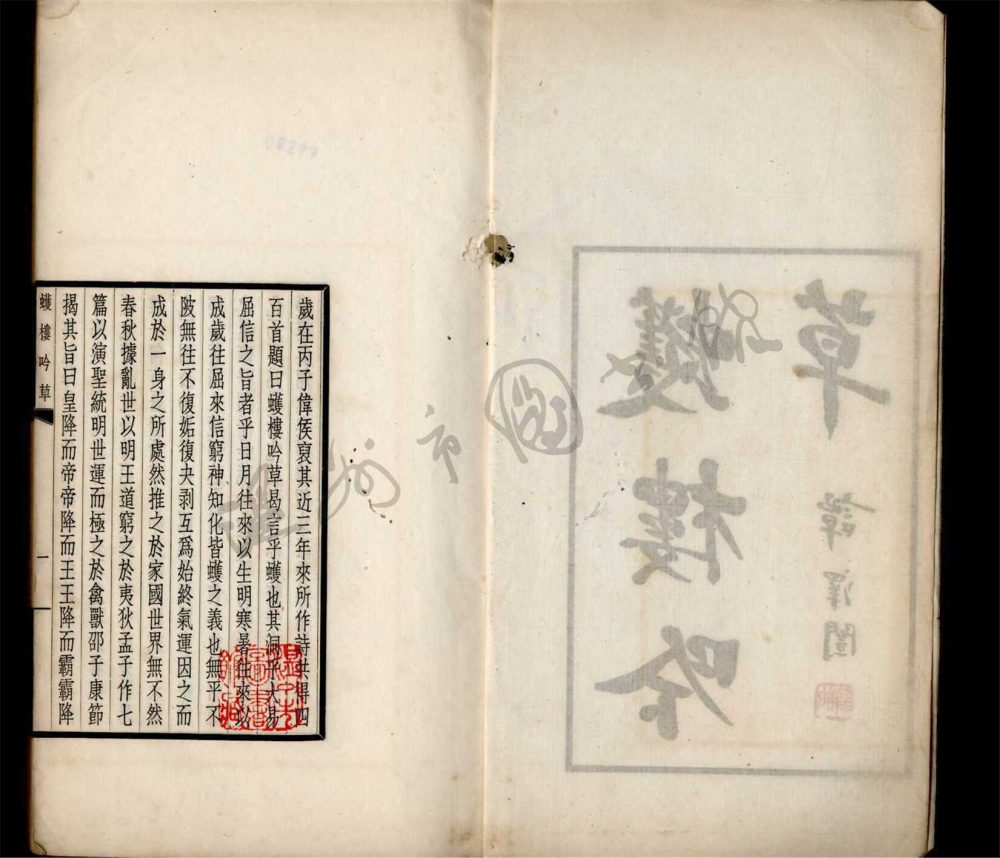 草
蠖樓吟
譚澤闓
歲在丙子偉侯裒其近三年來所作詩共得四
百首題曰蠖樓吟草曷言乎蠖也其洞乎大易
屈信之旨者乎日月往來以生明寒暑往來以
成歲往屈來信窮神知化皆蠖之義也無平不
陂無往不復姤復夬剥互爲始終氣運因之而
成於一身之所處然推之於家國世界無不然
春秋據亂世以明王道窮之於夷狄孟子作七
篇以演聖統明世運而極之於禽獸邵子康節
揭其旨曰皇降而帝帝降而王王降而霸霸降
蠖樓吟草
一
08299